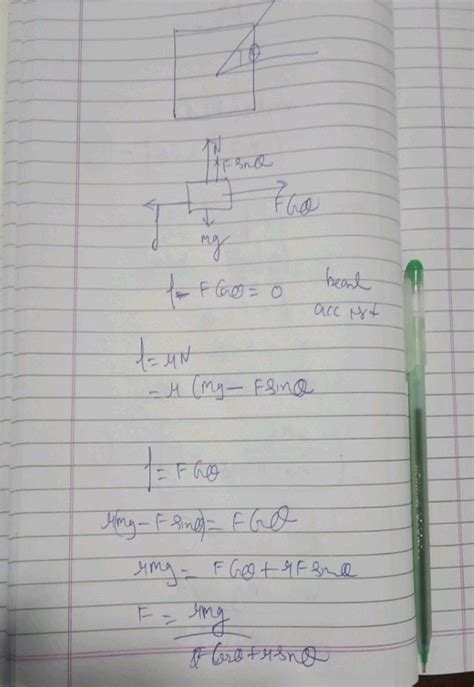 θ
N
F sinθ
F Cosθ
f
mg
f - F Cosθ = 0
acc
f = μN
= μ (mg - F sinθ
f = F Cosθ
μ(mg - F sinθ) = F Cosθ
μmg = F Cosθ + μF sinθ
F = μmg
Cosθ + μ sinθ